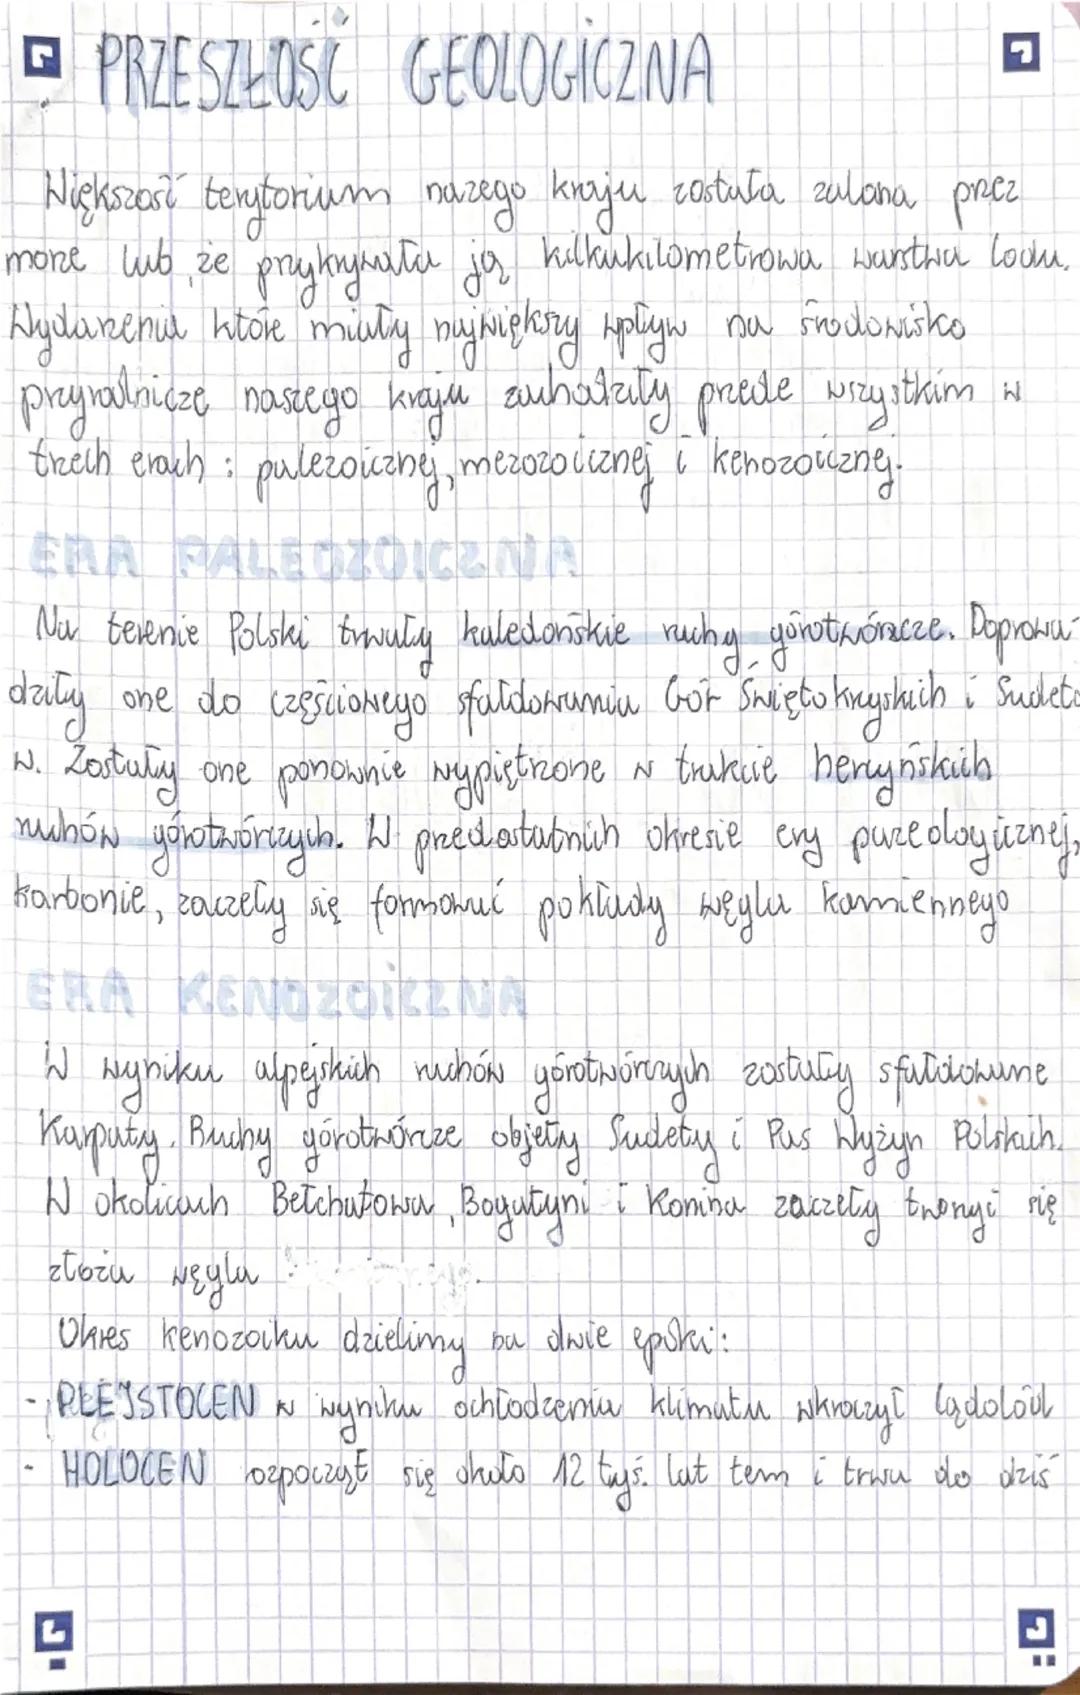 PRZESZŁOŚĆ GEOLOGICZNA
Większość terytorium nazego kraju została zalana prez
morze lub, że przykrywała ją kilkukilometrowa warstwa lodu.
Wydarzenia które miały największy wpływ na środowisko
przyrodnicze naszego kraju zachodziły przede wszystkim w
trzech erach : palezoicznej, mezozoicznej i kenozoicznej.
ERA PALEOZOICZNA
Na terenie Polski trwały kaledońskie ruchy górotwórcze. Doprowa-
dziły one do częściowego sfałdowania Gór Świętokryskich i Sudetó
w. Zostały one ponownie wypiętrzone w trakcie hercyńskich
ruchów górotwórczych. W przedostatnich okresie ery pazeologicznej,
karbonie, zaczeły się formować pokłady węgla kamiennego
ERA KENOZOICZNA
W wyniku alpejskich ruchów górotwórczych zostały sfałdowane
Karpaty. Ruchy górotwórcze objeły Sudety i Pas Wyżyn Polskich.
W okolicach Bełchatowa, Bogatyni i Konina zaczeły tworzyć się
złoża węgla
Okres kenozoiku dzielimy na dwie epoki:
- PLEJSTOCEN w wyniku ochłodzenia klimatu wkroczył lądolód
- HOLOCEN ozpoczął się około 12 tyś. lat tem i trwa do dziś